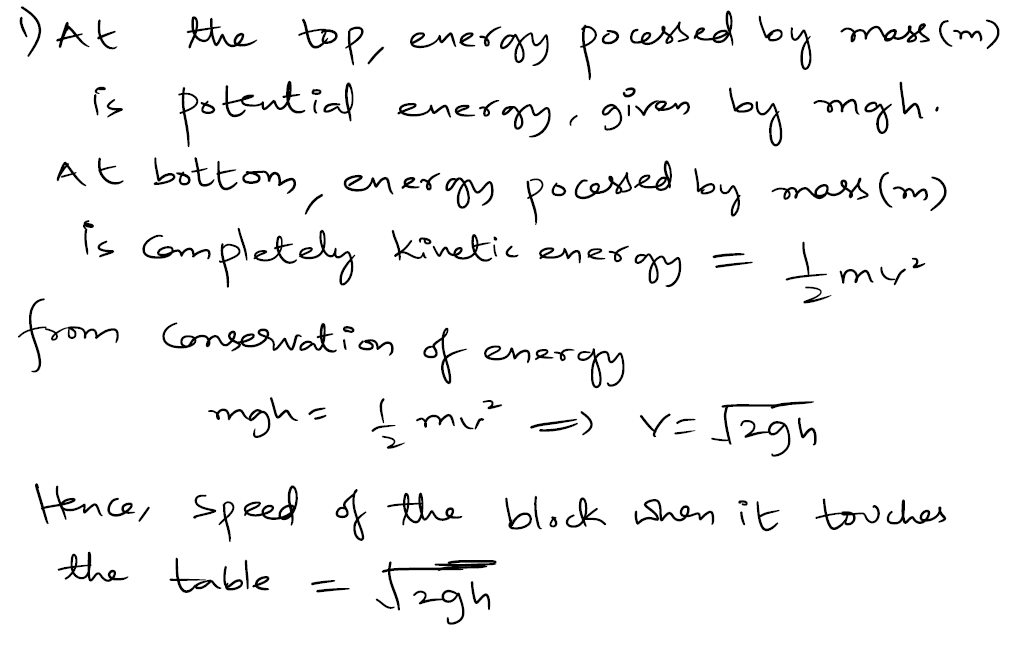 1) At the top, energy pocessed by mass (m)
is potential energy, given by mgh.
At bottom, energy pocessed by mass (m)
is completely kinetic energy = 1/2 mv²
from conservation of energy
mgh = 1/2 mv² => v = √2gh
Hence, speed of the block when it touches
the table = √2gh